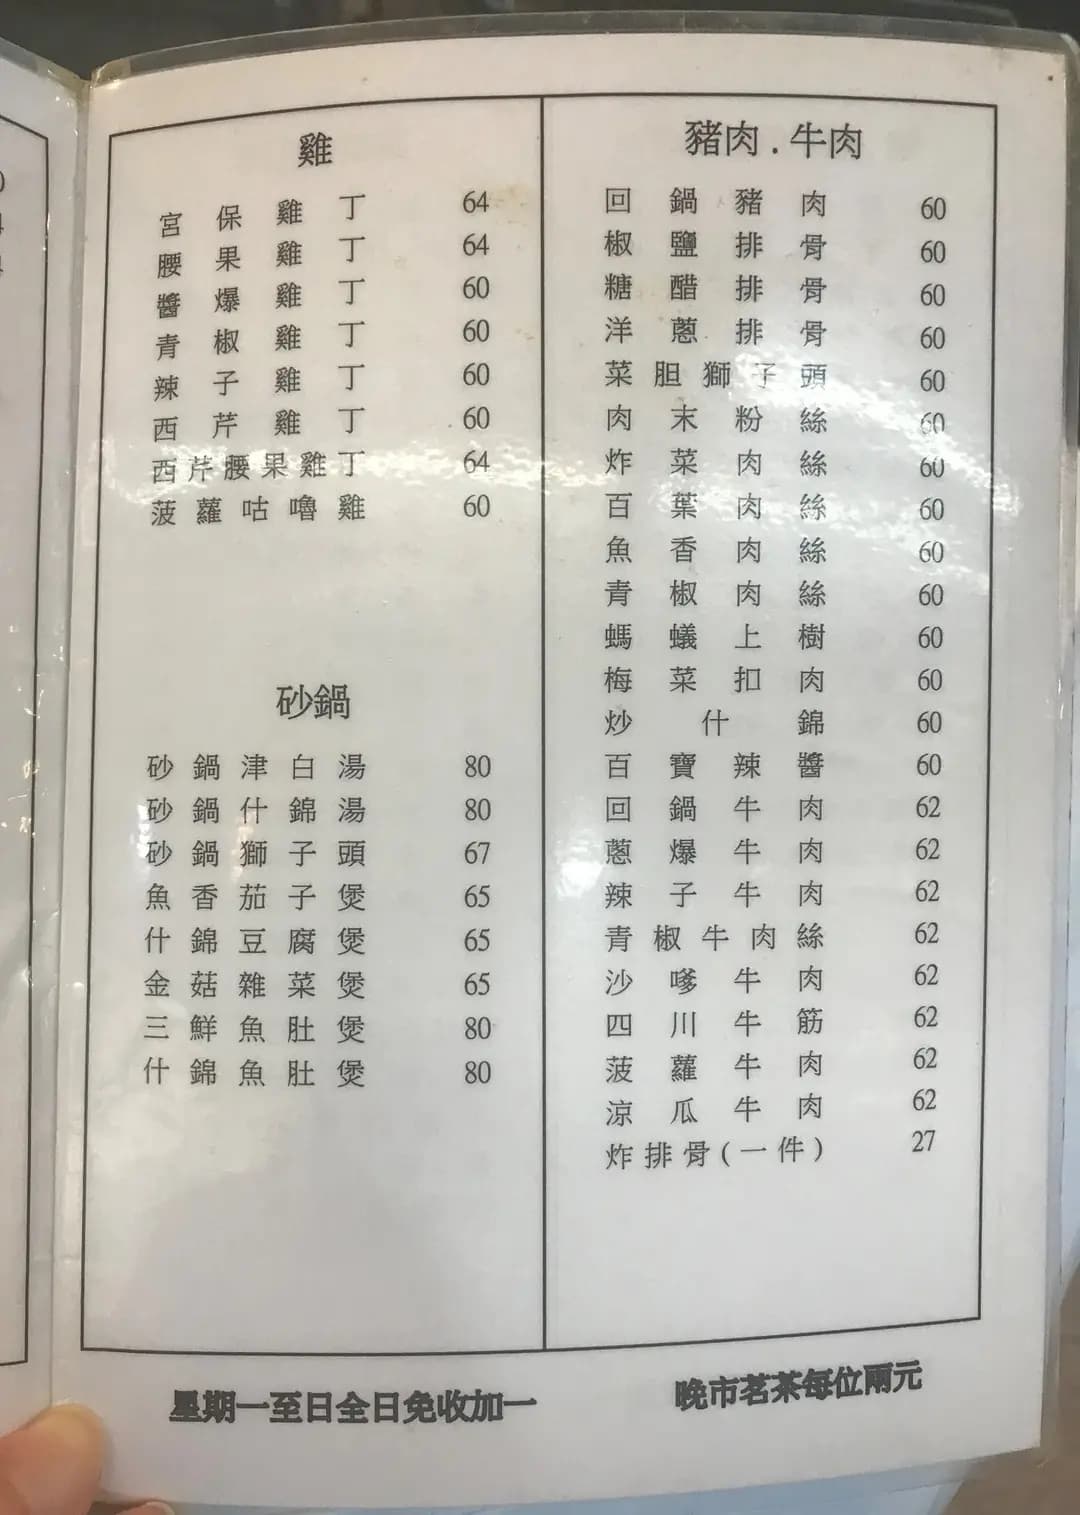 雞
宮保雞丁 64
腰果雞丁 64
醬爆雞丁 60
青椒雞丁 60
辣子雞丁 60
西芹雞丁 60
西芹腰果雞丁 64
菠蘿咕嚕雞 60
砂鍋
砂鍋津白湯 80
砂鍋什錦湯 80
砂鍋獅子頭 67
魚香茄子煲 65
什錦豆腐煲 65
金菇雜菜煲 65
三鮮魚肚煲 80
什錦魚肚煲 80
豬肉.牛肉
回鍋豬肉 60
椒鹽排骨 60
糖醋排骨 60
洋蔥排骨 60
菜胆獅子頭 60
肉末粉絲 60
炸菜肉絲 60
百葉肉絲 60
魚香肉絲 60
青椒肉絲 60
螞蟻上樹 60
梅菜扣肉 60
炒什錦 60
百寶辣醬 60
回鍋牛肉 62
蔥爆牛肉 62
辣子牛肉 62
青椒牛肉絲 62
沙嗲牛肉 62
四川牛筋 62
菠蘿牛肉 62
凉瓜牛肉 62
炸排骨(一件) 27
星期一至日全日免收加一
晚市茗茶每位兩元